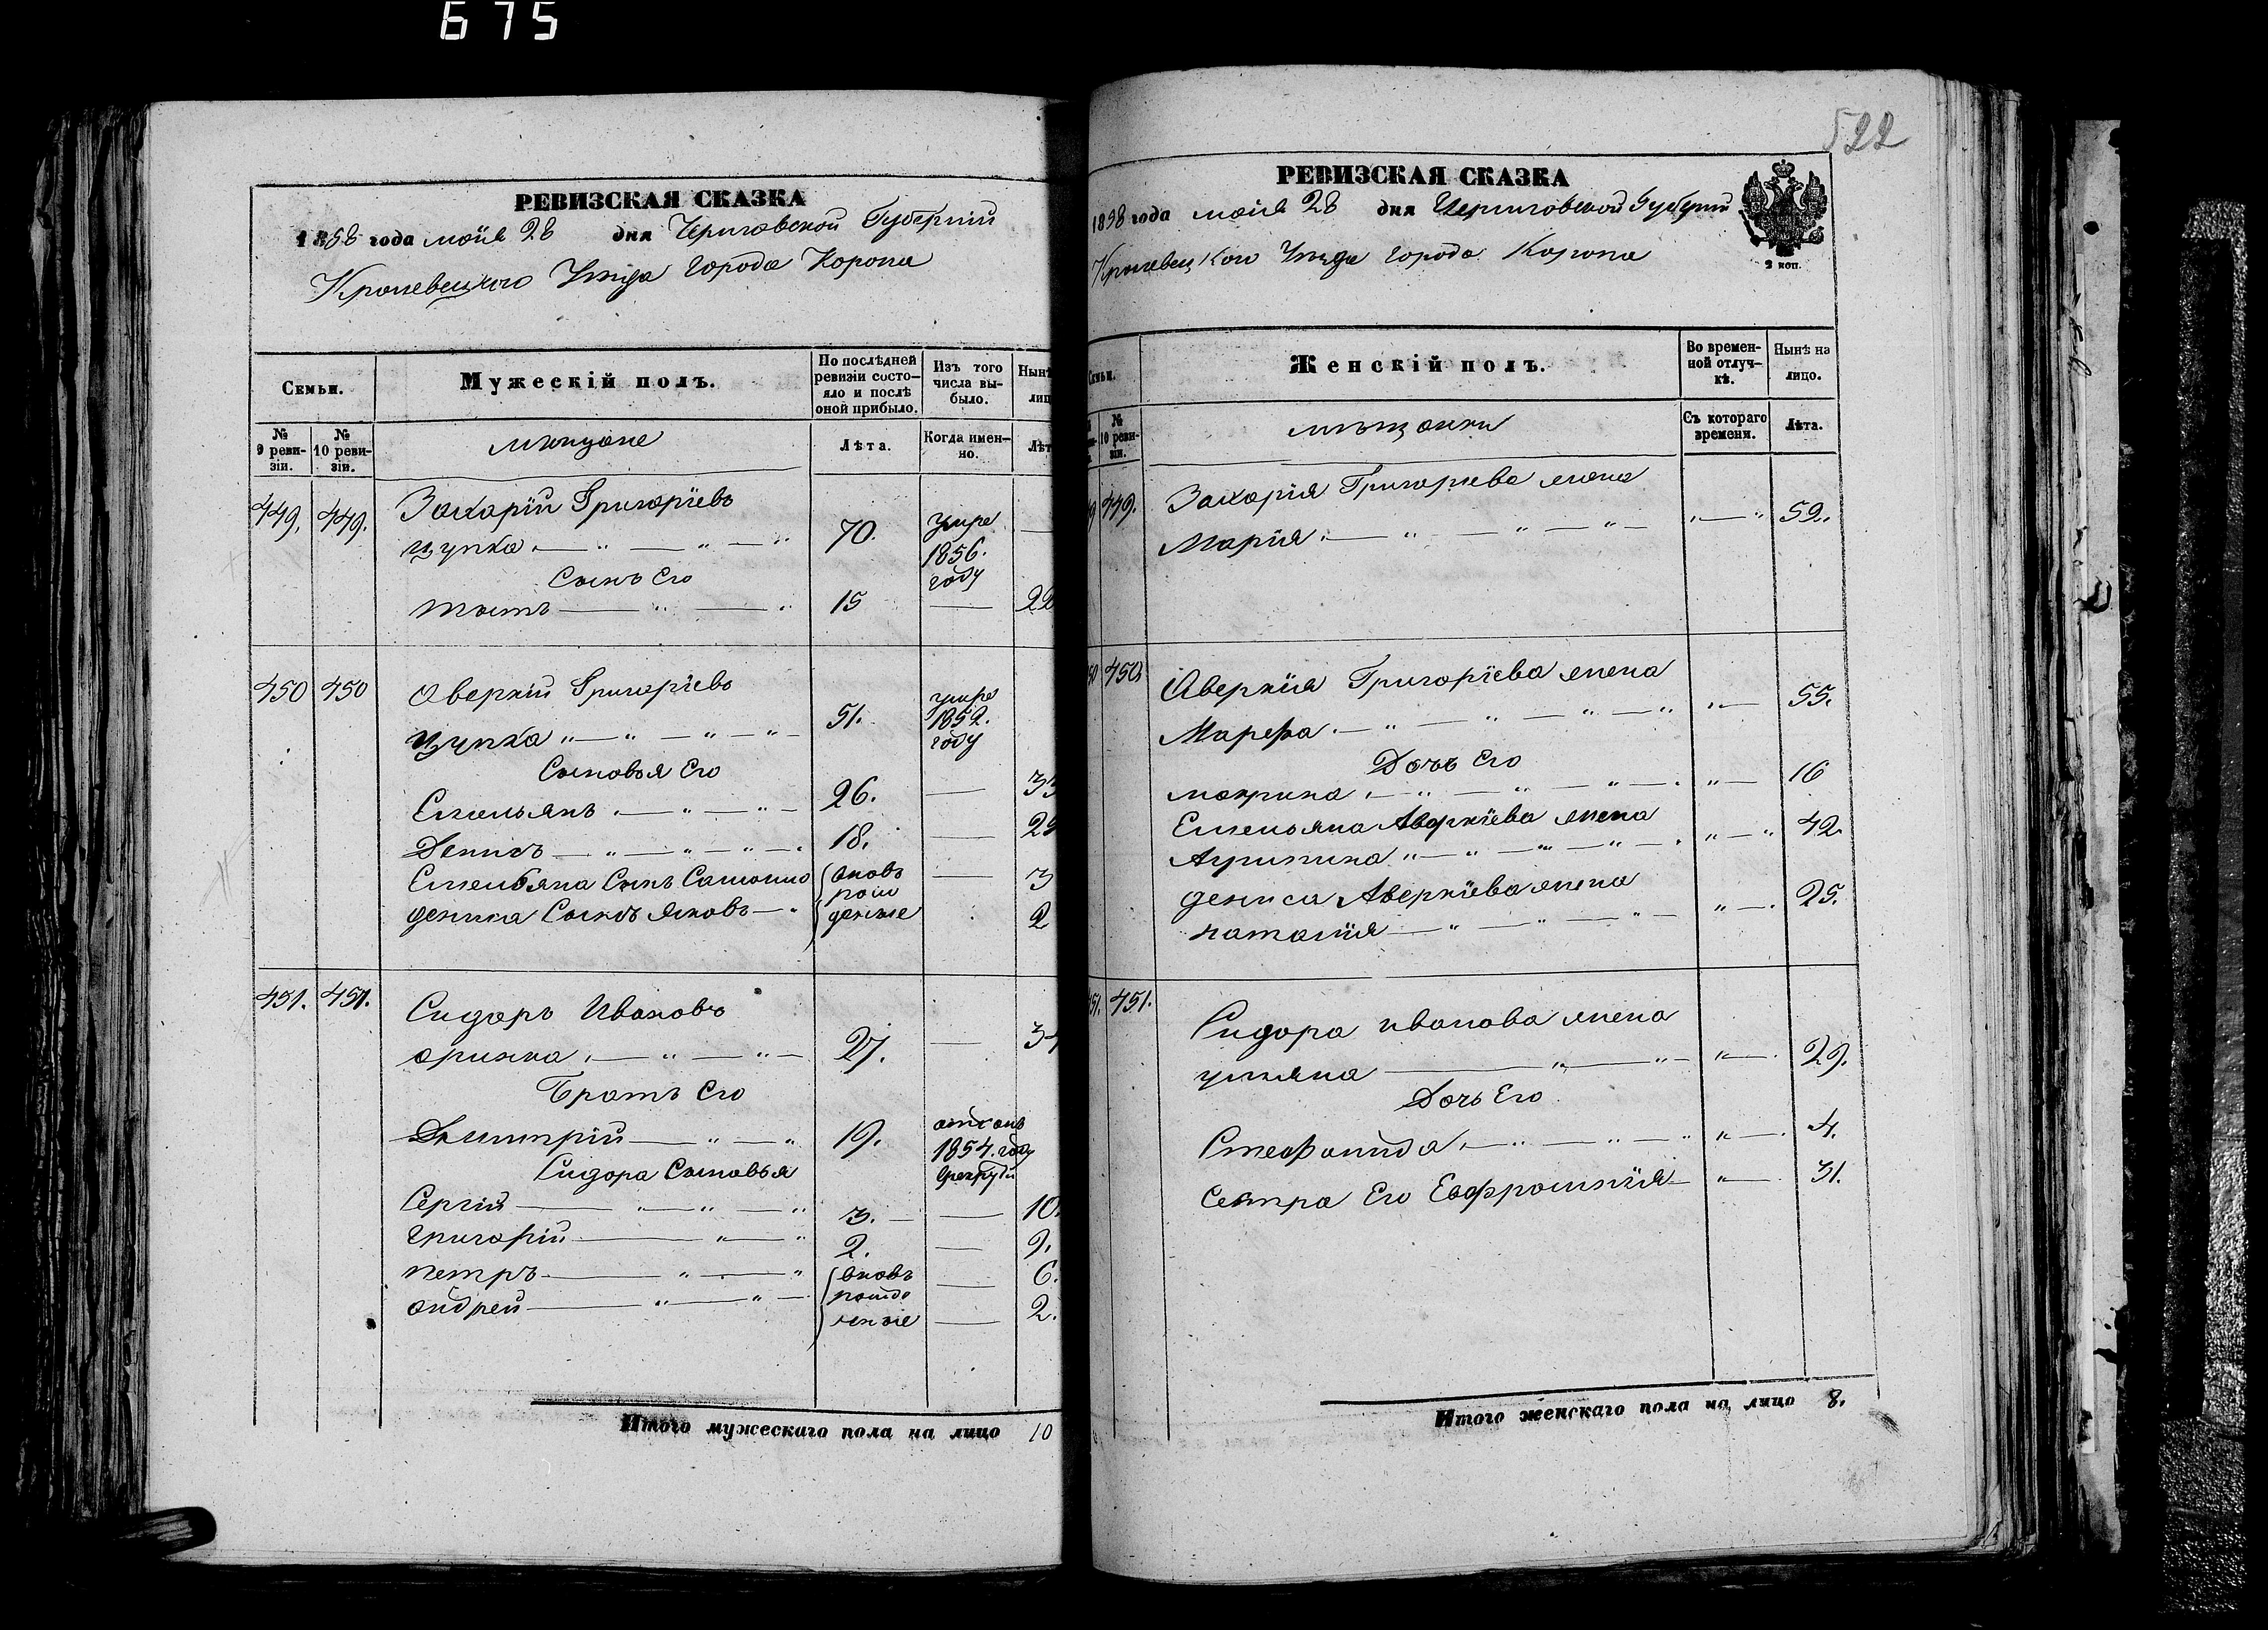 675
РЕВИЗСКАЯ СКАЗКА
1858 года маія 28 дня Черниговской Губерніи
Кролевецкого Уѣзда города Коропа
Семьи.
Мужескій полъ.
По послѣдней ревизіи состояло и послѣ оной прибыло.
Изъ того числа выбыло.
Нынѣ
лиц
№ 9 ревизіи.
№ 10 ревизіи.
мѣщане
Лѣта.
Когда именно.
Лѣт
449. 449. Захарій Григоріевъ
Цупка 70. умре 1856. году
Сынъ Его
Титъ 15 22
450 450 Аверкій Григоріевъ
Цупка 51. умре 1852. году
Сыновья Его
Емельянъ 26. 33
Денисъ 18. 25
Емельяна Сынъ 3
Сынъ Яковъ 2
451. 451. Сидоръ Ивановъ
27. 34
Братъ Его
Дмитрій 19. 1854. году
Сидора Сыновья
Сергій 3. 10.
Григорій 2. 9.
Петръ вновь 6.
Андрей 2.
Итого мужескаго пола на лицо 10
522
РЕВИЗСКАЯ СКАЗКА
1858 года маія 28 дня Черниговской Губерніи
Кролевецкого Уѣзда города Коропа
2 коп.
Семьи.
Женскій полъ.
Во временной отлучкѣ.
Нынѣ на лицо.
№ 10 ревизіи.
мѣщанки
Съ котораго времени.
Лѣта.
449. Захарія Григорьева жена
Марія 59.
450. Аверкія Григоріева жена
Марефа 55.
Дочь Его
Макрина 16
Емельяна Аверкіева жена
Агрипина 42.
Дениса Аверкіева жена
Наталія 25.
451. Сидора Иванова жена
Ульяна 29.
Дочь Его
Стефанида 4.
Сестра Его Евфросинія 31.
Итого женскаго пола на лицо 8.